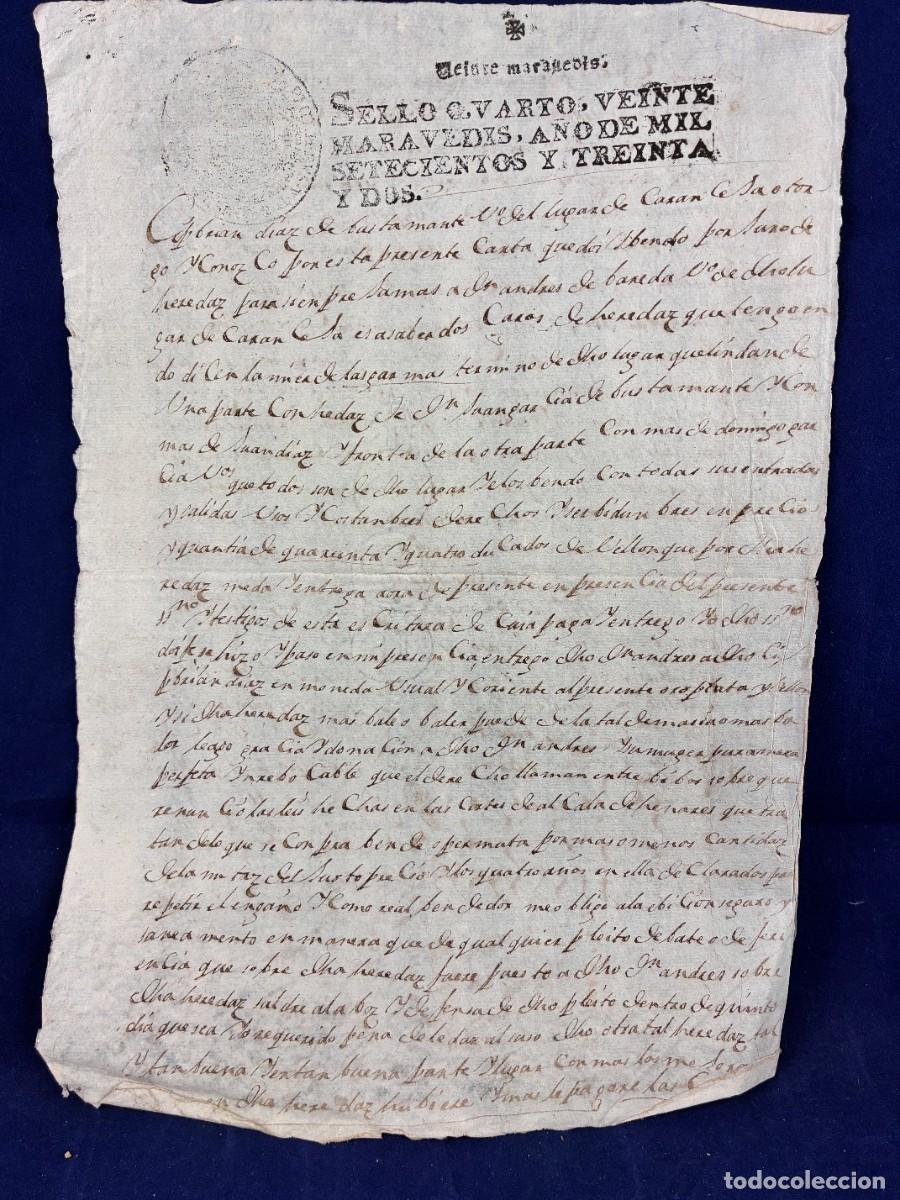 Veinte maravedis.
SELLO QVARTO, VEINTE
MARAVEDIS, AÑO DE MIL
SETECIENTOS Y TREINTA
Y DOS.
Cipbrian diaz de bustamante Vº del lugar de CaranCeJa otor
go Y ConozCo por esta presente Carta que doi Y bendo por Juro de
heredaz para sienpre Jamas a Dn andres de bareda Vº de dho lu
gar de CaranCeJa es a saber dos Caros de heredaz que tengo en
de las mas termino de dho lugar que lindan de
Una parte Con hedaz de Dn Juan garCia de bustamante Y Con
mas de Juan diaz Y fronta de la otra parte Con mas de domingo gar
Cia Vos que todos son de dho lugar Y elos bendo Con todas sus entradas
y salidas Usos Y Costanbres dereChos Y serbidunbres en preCio
y quantia de quarenta Y quatro duCados de Vellon que por dha he
redaz me da Y entrega aora de presente en presenCia del presente
ssno Y testigos de esta esCritura de Cuia paga Y entrego Yo dho ssno
doi fe se hizo Y paso en mi presenCia, entrego dho Dn andres a dho Ci
pbrian diaz en moneda Usual Y Coriente al presente oro plata y Vellon
Y si dha heredaz mas bale o baler puede de la tal demasia o mas ba
lor le ago graCia Y donaCion a dho Dn andres Y su muger pura mera
perfeta Y inreboCable que el dereCho llaman entre bibos sobre que
renunCio las leis heChas en las Cortes de alCala de henares que tra
tan de lo que se Conpra bende o permuta por mas o menos Cantidaz
de la mitaz del Justo preCio Y los quatro años en ella deClarados pa
repetir el engaño Y Como real bendedor me obligo a la ebiCion seguro y
saneamento en manera que de qualquier pleito debate o dife
renCia que sobre dha heredaz fuere puesto a dho Dn andres sobre
dha heredaz saldre a la boz Y defensa de dho pleito dentro de quinto
dia que sea Yo requerido pena de le daz al suso dho otra tal heredaz tal
Y tan buena Y en tan buena parte Y lugar Con mas los
en dha heredaz hubiere Y mas le pagare las
todocoleccion